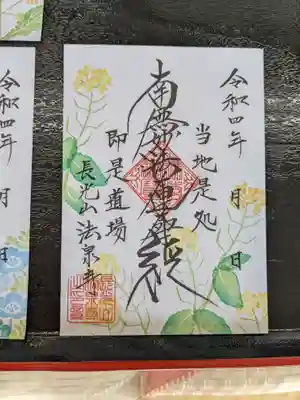 令和四年 月 日
当地是処
南無妙法蓮華経
即是道場
長光山 法泉寺
令和四年 月 日